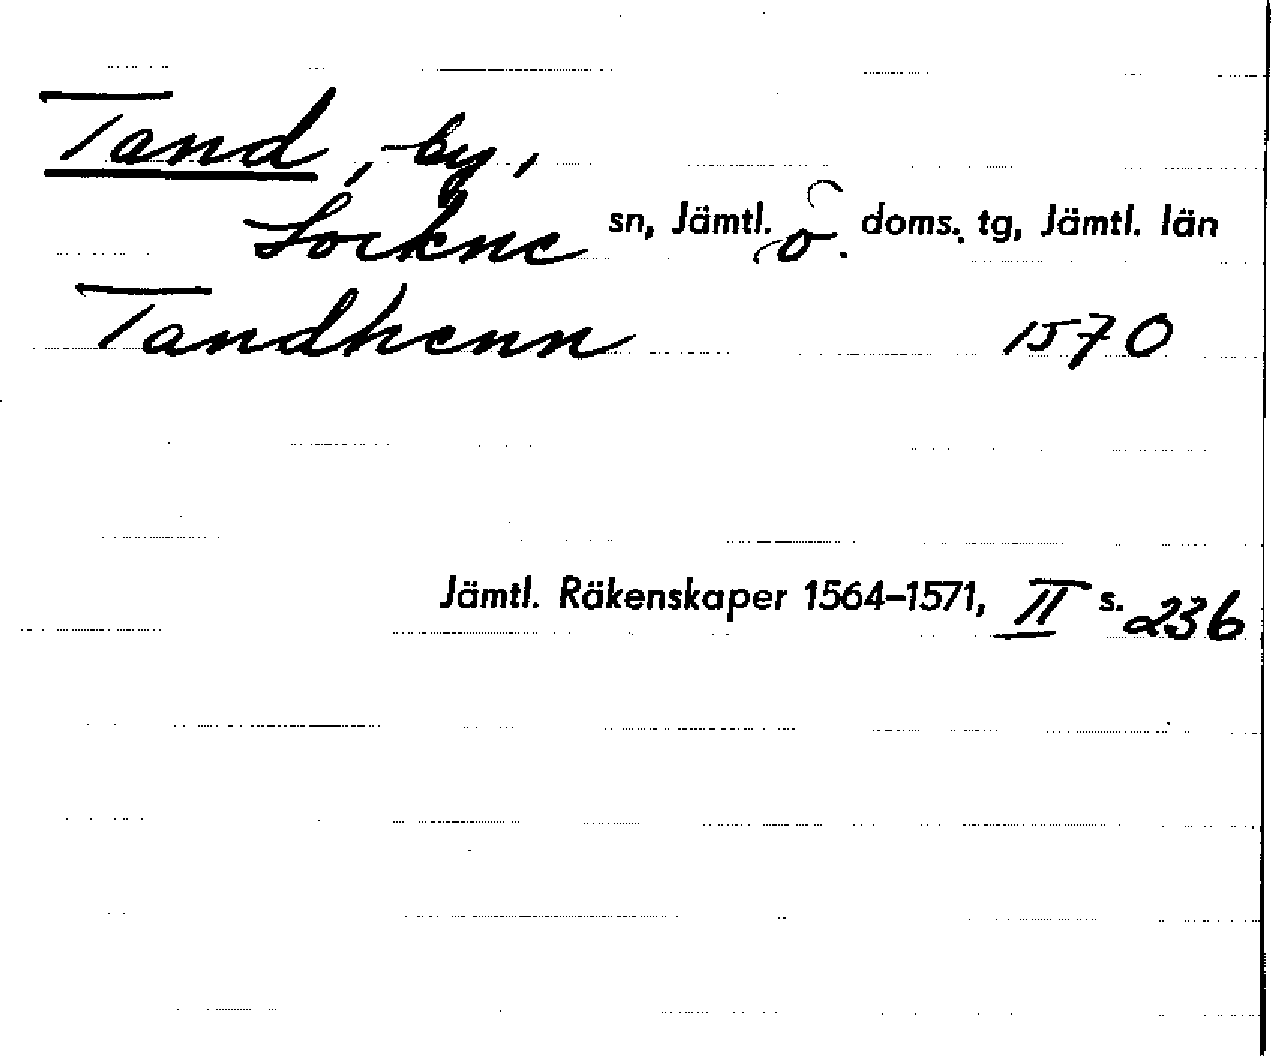 Tand, by,
Lockne sn, Jämtl. ö. doms. tg, Jämtl. län
Tandhenn 1570
Jämtl. Räkenskaper 1564-1571, II s. 236